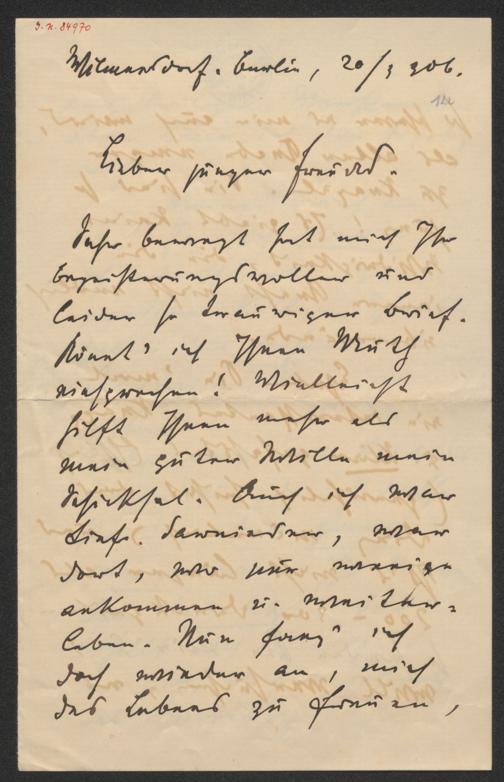 J.N. 84970
Wilmersdorf-Berlin, 20/3 906.
Lieber junger Freund.
Sehr bewegt hat mich Ihr
begeisterungsvoller und
leider so trauriger Brief.
Könnt' ich Ihnen Muth
einsprechen! Vielleicht
hilft Ihnen mehr als
mein guter Wille mein
Schicksal. Auch ich war
tief darnieder, war
dort, wo nur wenige
ankommen u. weiter-
leben. Nun fang' ich
doch wieder an, mich
des Lebens zu freuen,